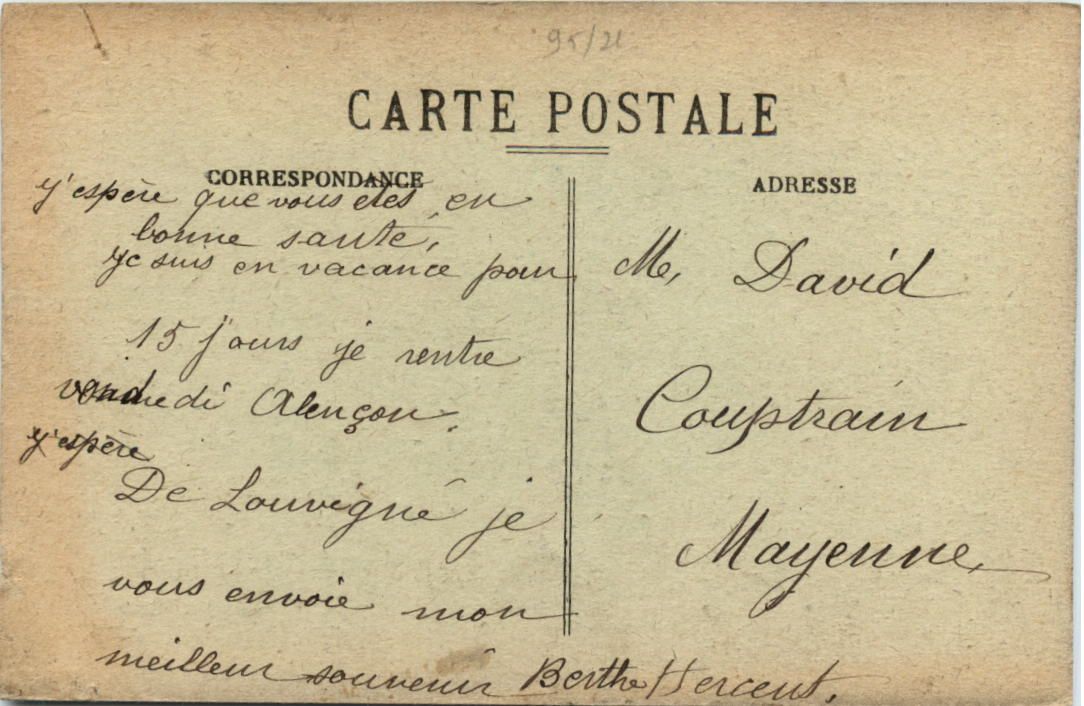 95/21
CARTE POSTALE
CORRESPONDANCE
j'espère que vous etes en
bonne santé,
je suis en vacance pour
15 jours je rentre
vendredi Alençon.
j'espère
De Louvigné je
vous envoie mon
meilleur souvenir Berthe Hercent.
ADRESSE
Me, David
Couptrain
Mayenne